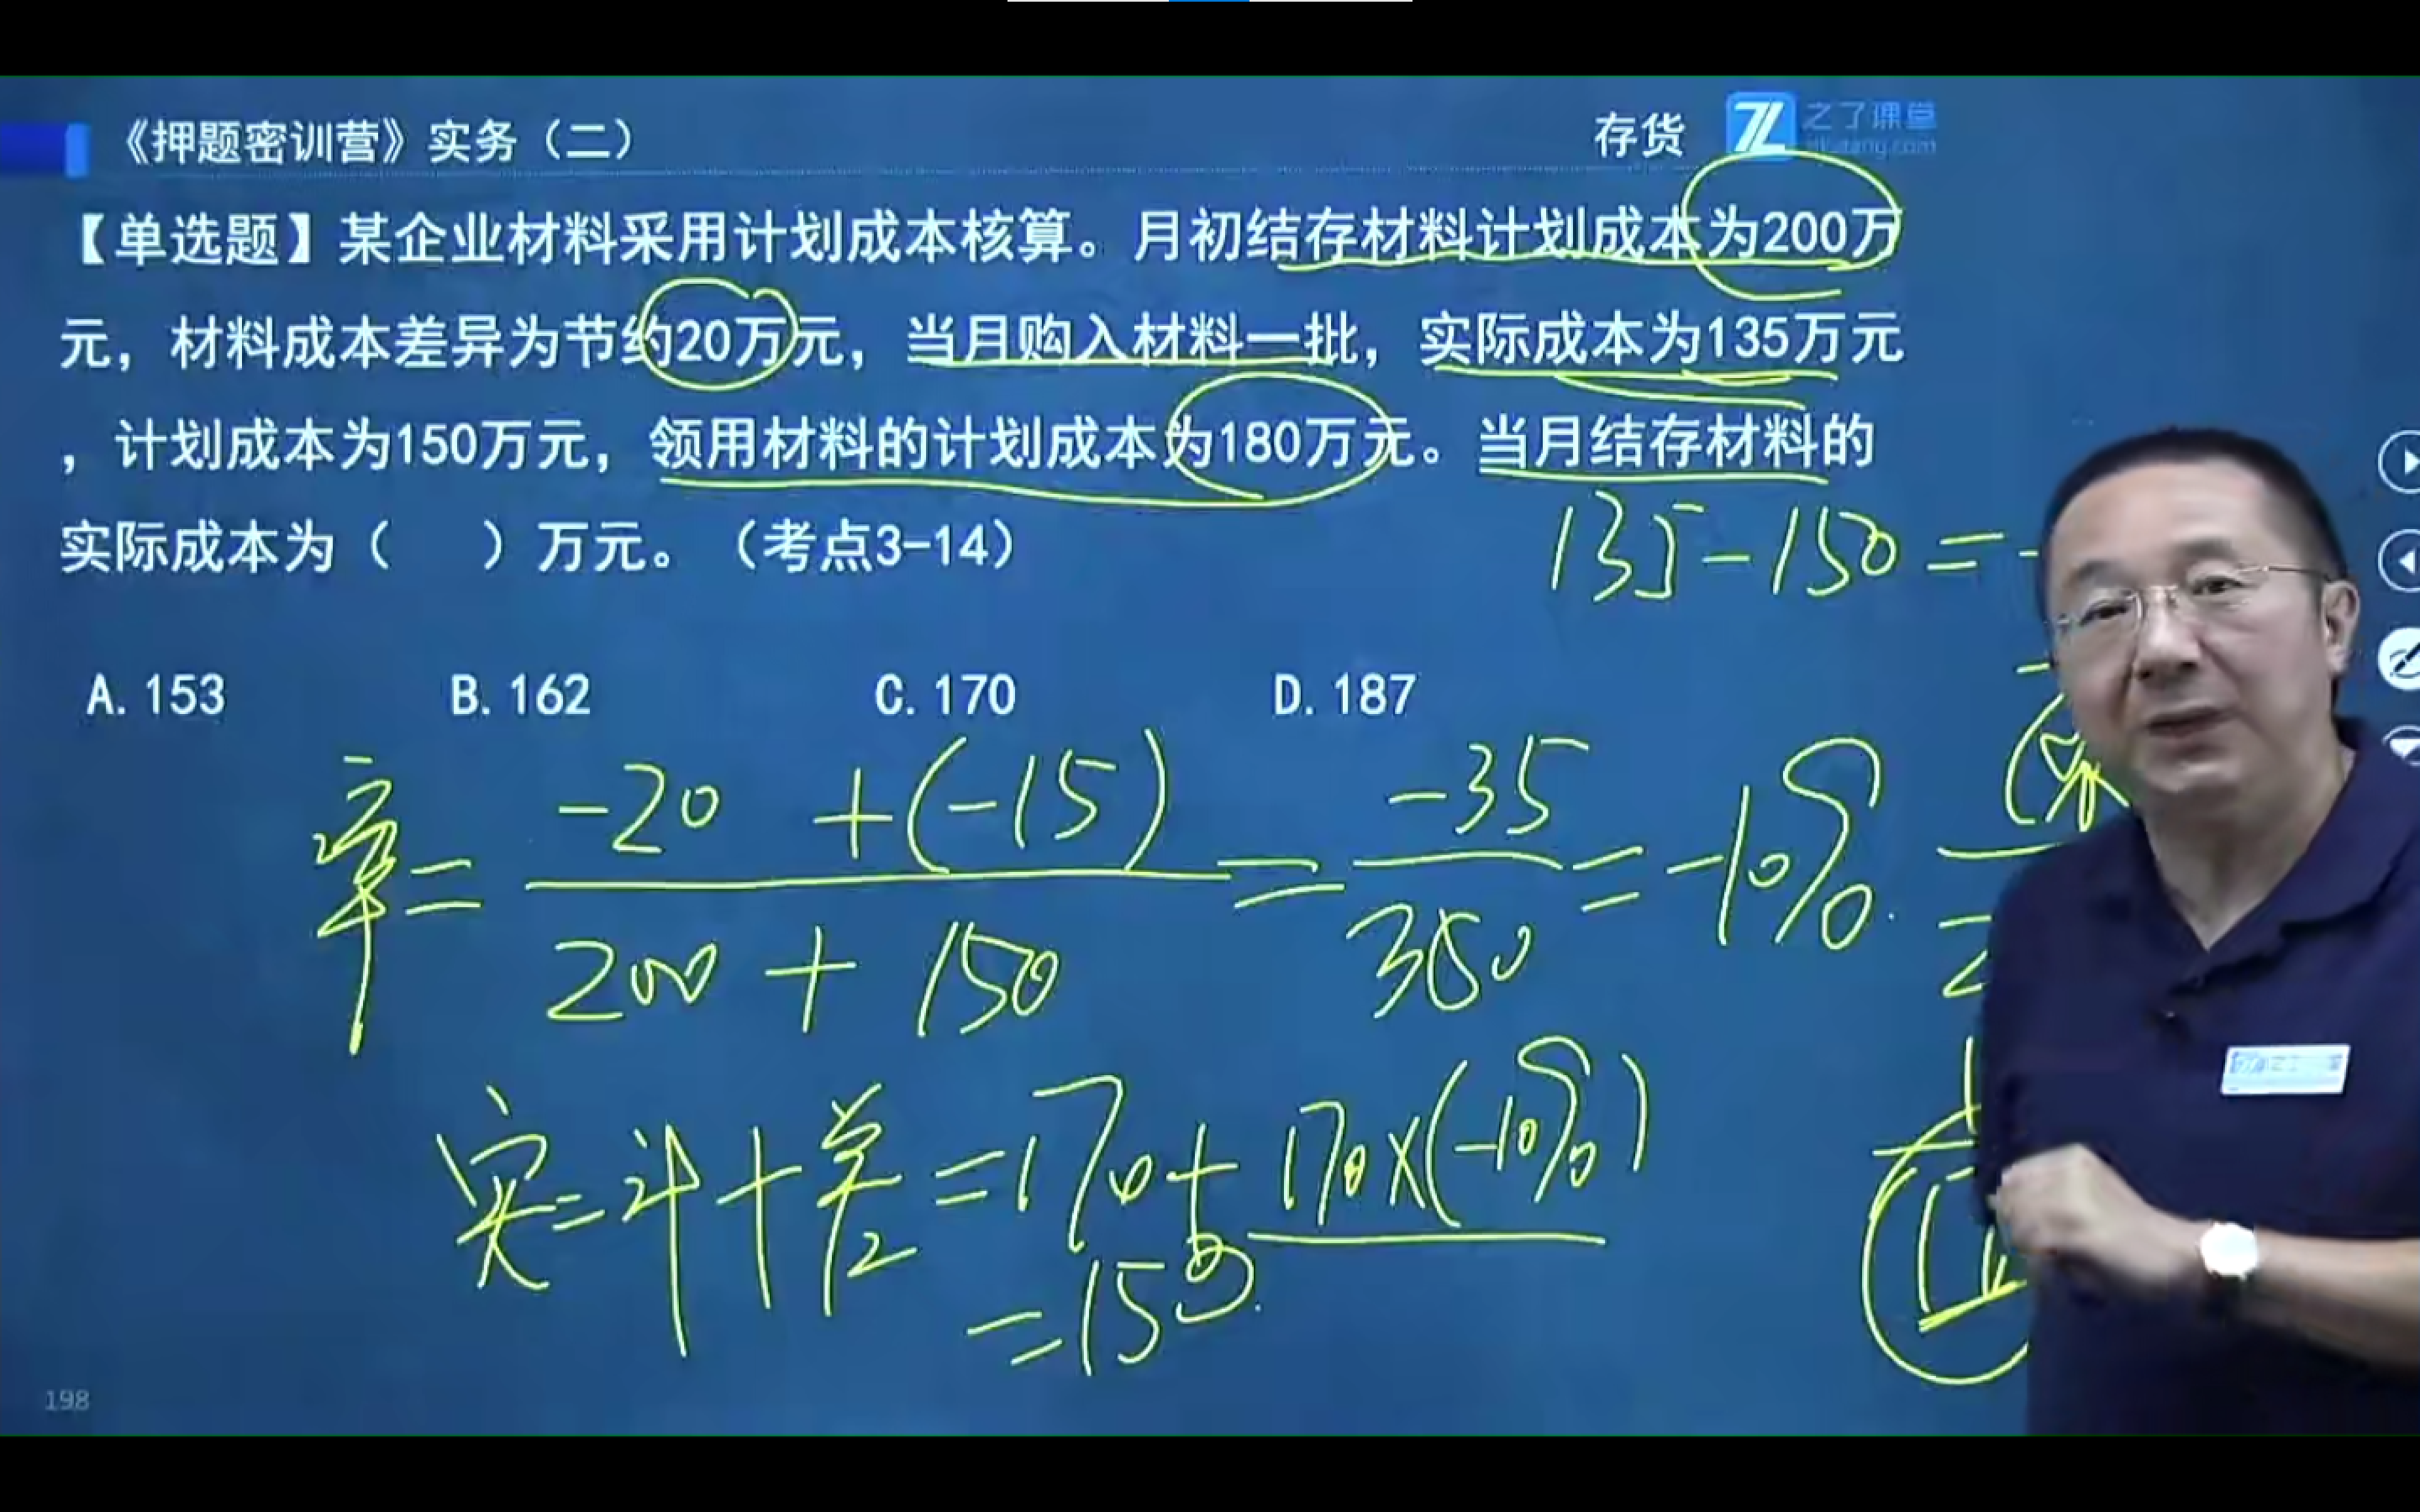 《押题密训营》实务（二）
存货
之了课堂
【单选题】某企业材料采用计划成本核算。月初结存材料计划成本为200万
元，材料成本差异为节约20万元，当月购入材料一批，实际成本为135万元
，计划成本为150万元，领用材料的计划成本为180万元。当月结存材料的
实际成本为（ ）万元。（考点3-14）
135-150=-
A. 153 B. 162 C. 170 D. 187
率= -20 +(-15) = -35 = -10%
200 + 150 350
实=计+差=170+170×(-10%)
=153
198